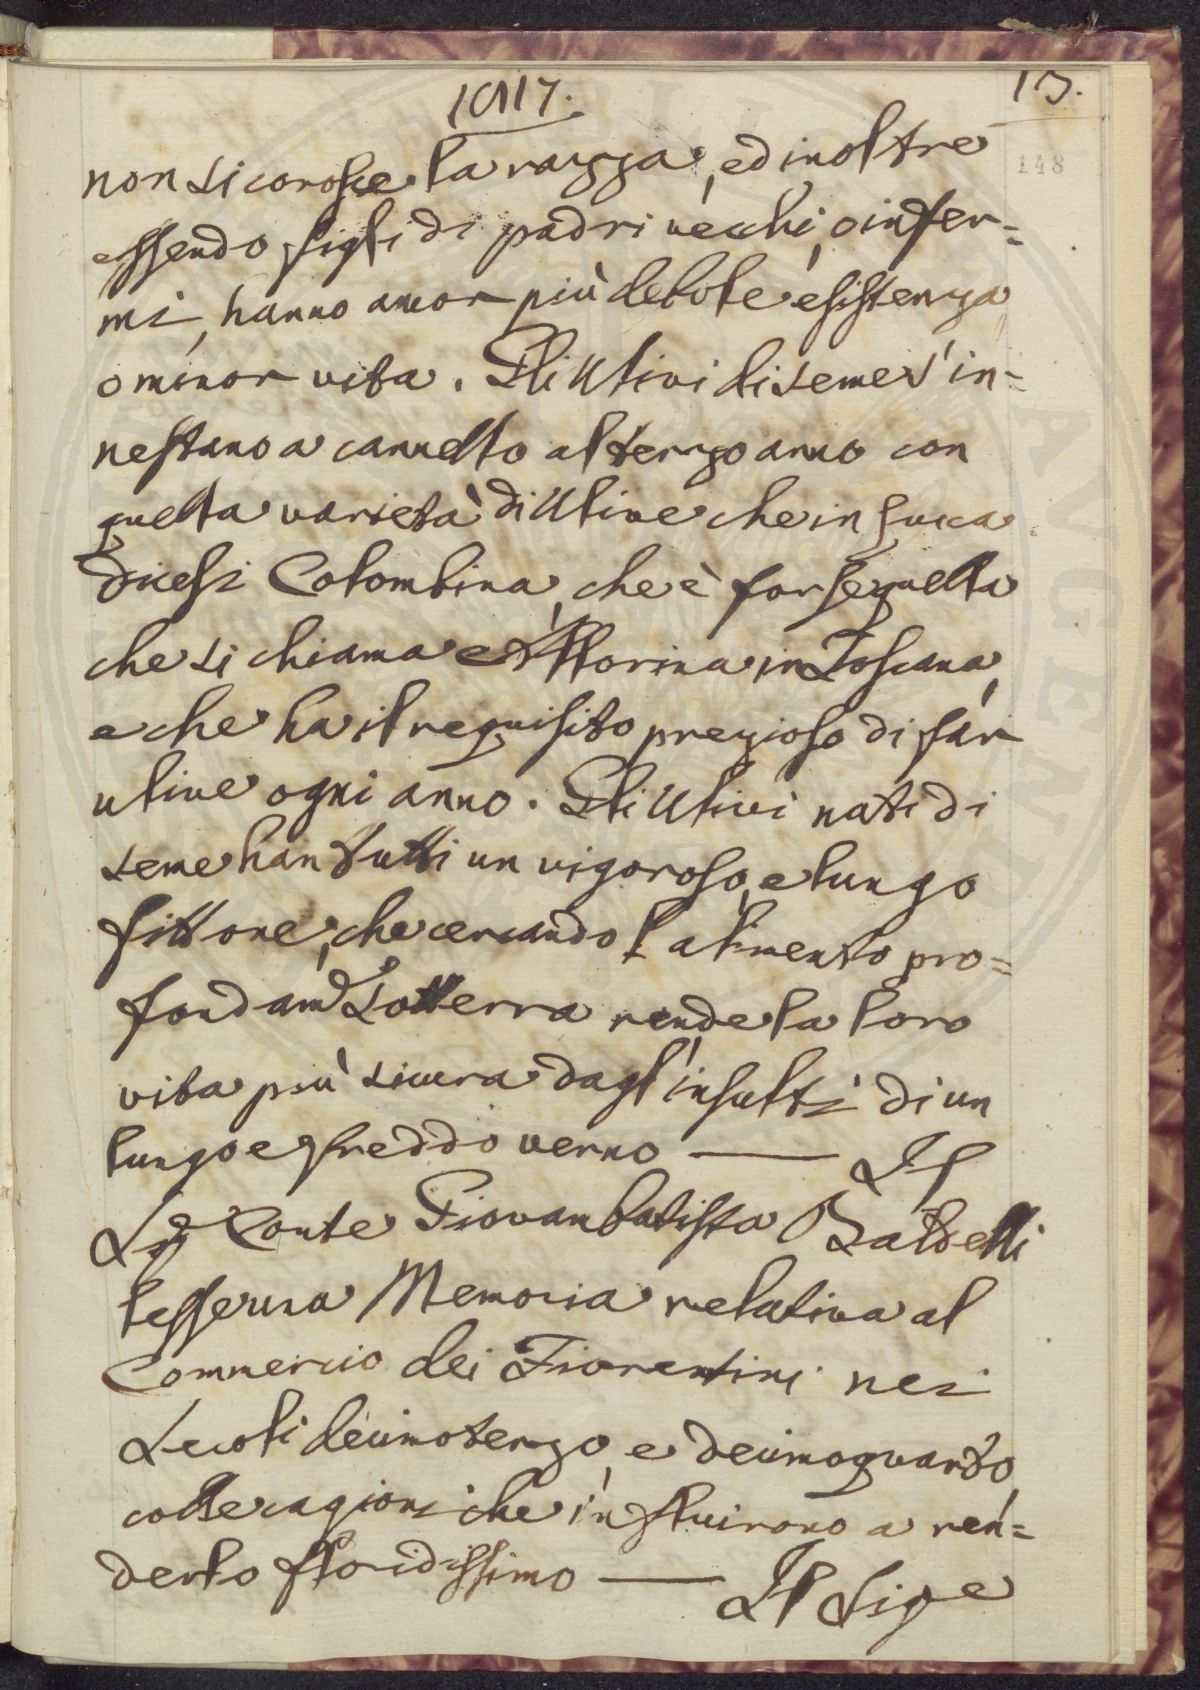 1817.
13.
148
non si conosce la razza, ed inoltre
essendo figli di padri vecchi, o infer=
mi, hanno ancor più debole esistenza
o minor vita. Gli Ulivi di seme s'in=
nestano a cannello al terzo anno con
quella varietà di Ulive che in Lucca
dicesi Colombina, che è forse quella
che si chiama Morina in Toscana,
e che ha il requisito prezioso di far
ulive ogni anno. Gli Ulivi nati di
seme han tutti un vigoroso, e lungo
fittone, che cercando l'alimento pro=
fondam.e sotterra rende la loro
vita più sicura dagl'insulti di un
lungo e freddo verno —— Il
Sig.e Conte Giovanbatista Baldelli
lesse una Memoria relativa al
Commercio dei Fiorentini nei
secoli decimoterzo, e decimoquarto,
colle cagioni che influirono a ren=
derlo floridissimo —— Il Sig.e